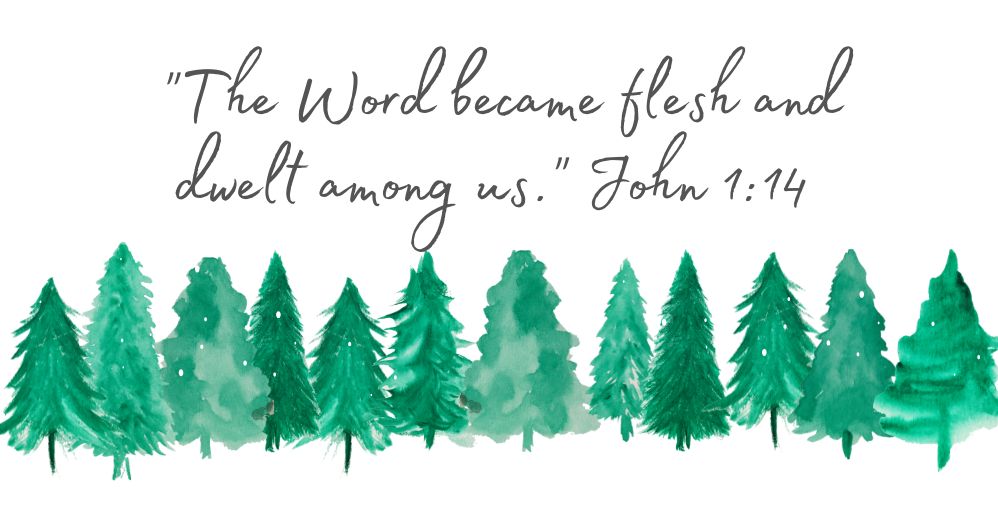 "The Word became flesh and
dwelt among us." John 1:14